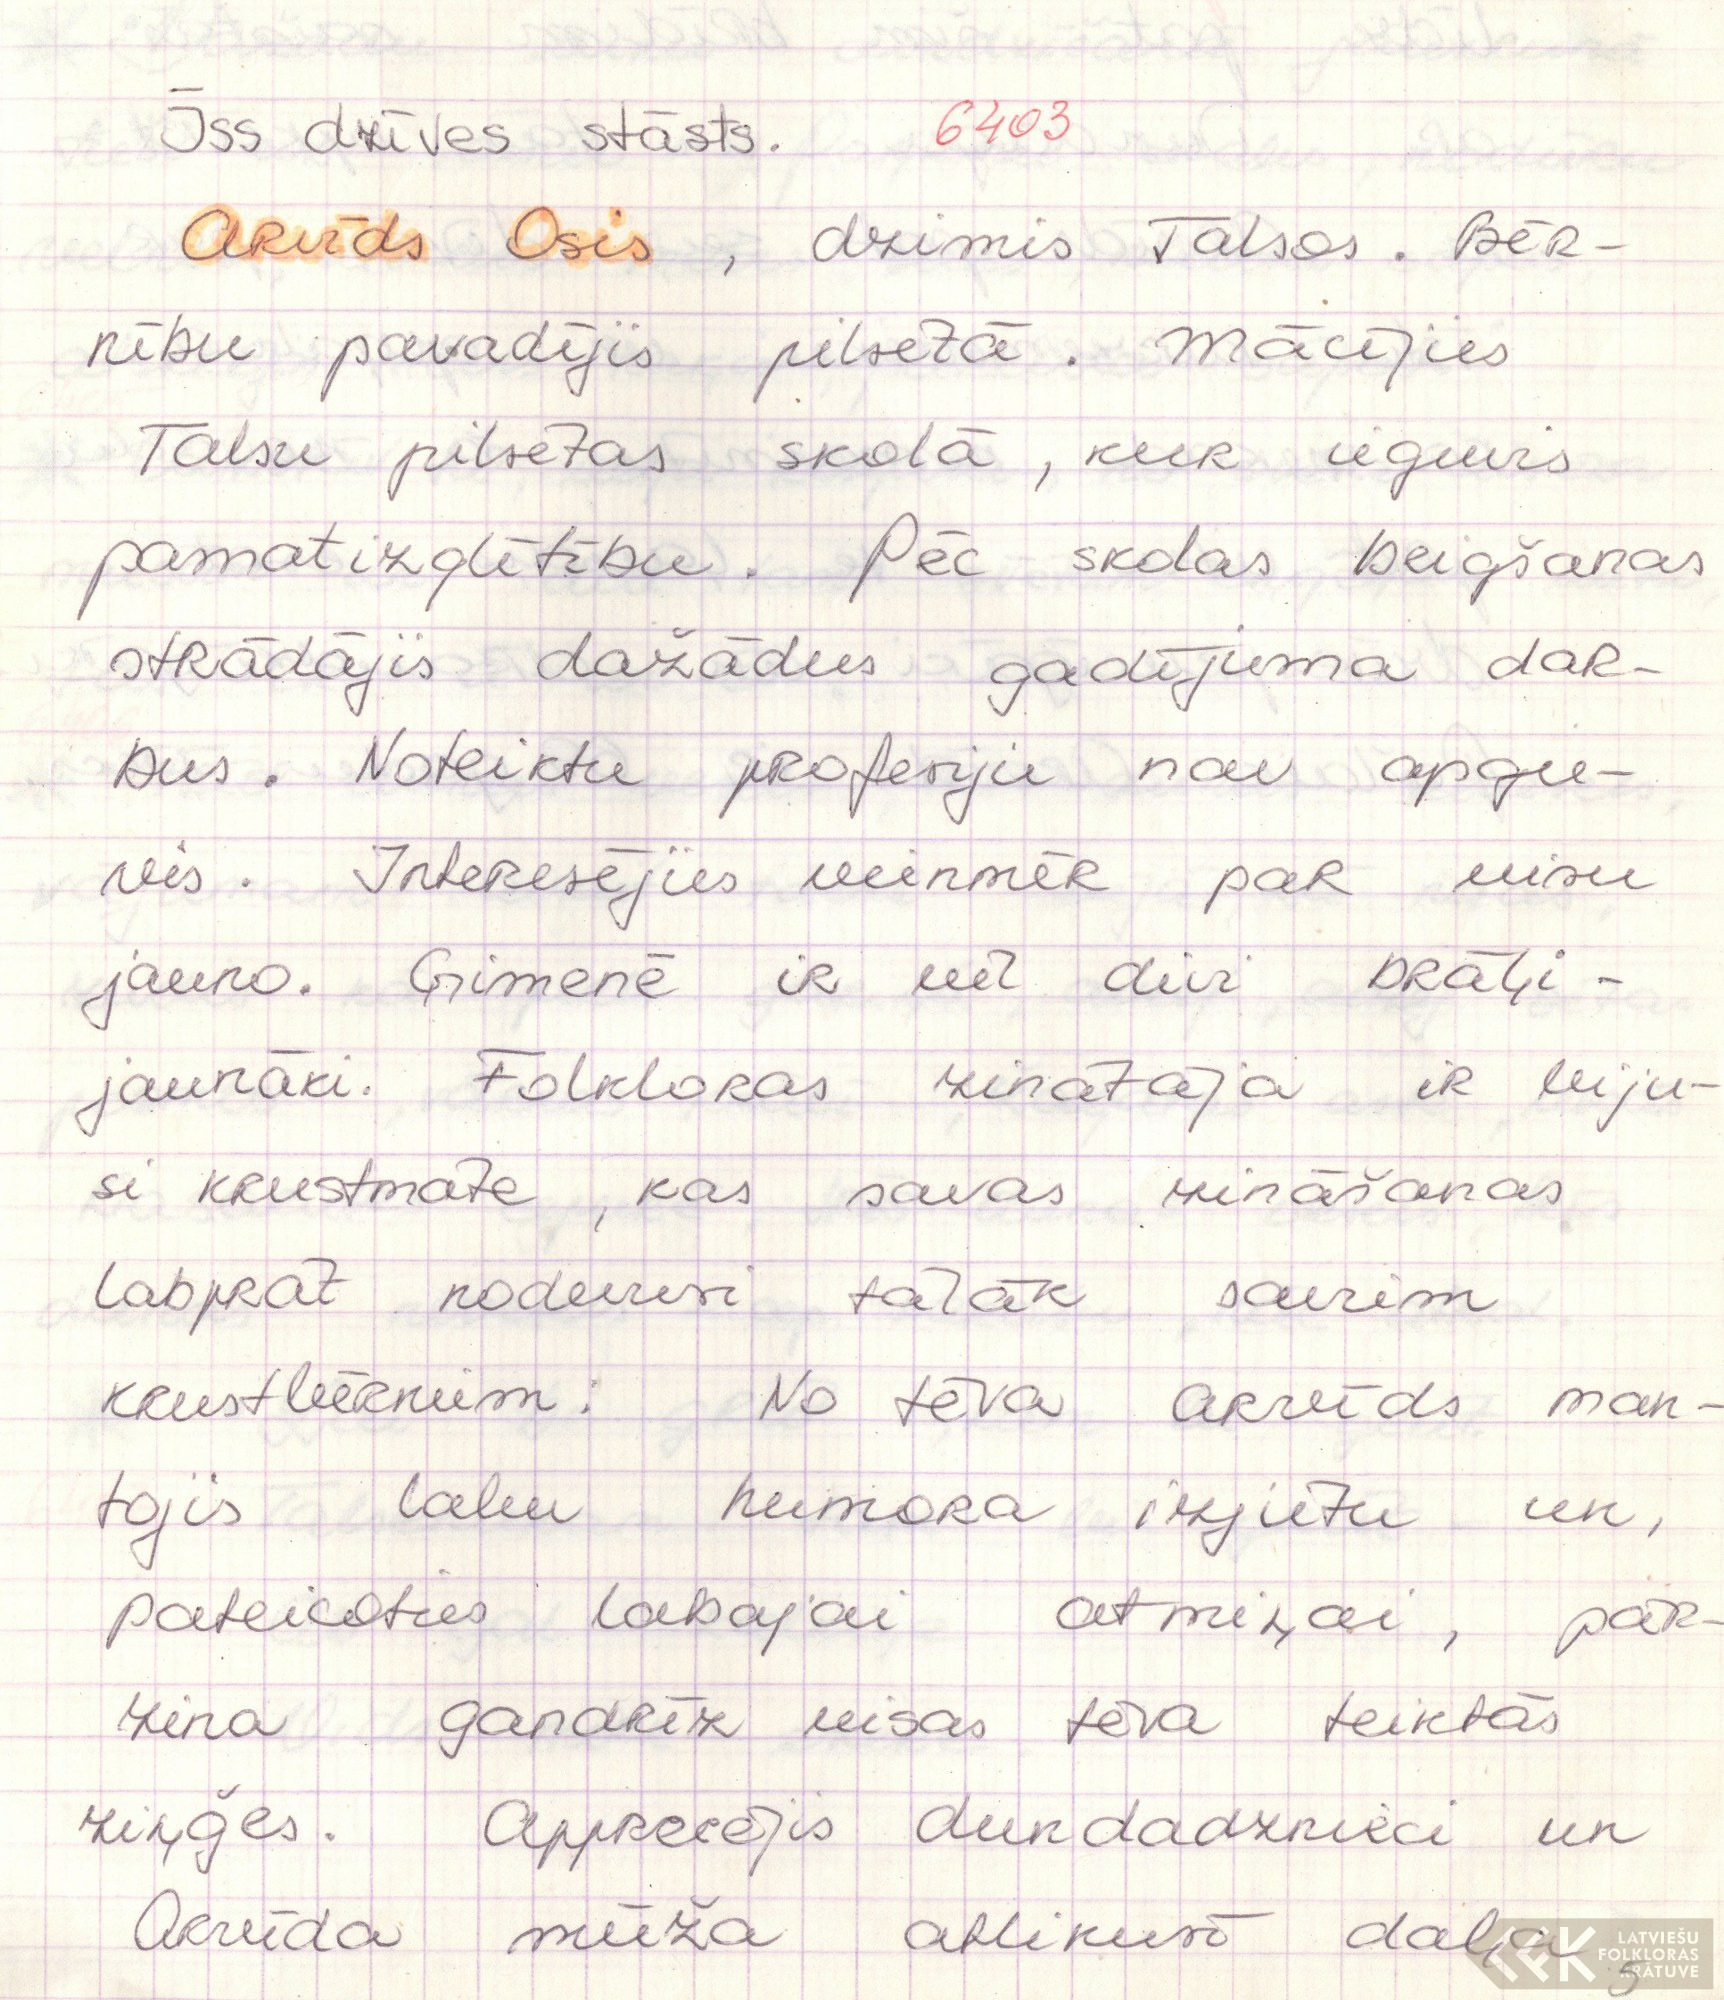 Īss dzīves stāsts. 6403
Arvīds Osis, dzimis Talsos. Bēr-
nību pavadījis pilsētā. Mācījies
Talsu pilsētas skolā, kur ieguvis
pamatizglītību. Pēc skolas beigšanas
strādājis dažādus gadījuma dar-
bus. Noteiktu profesiju nav apgu-
vis. Interesējies vienmēr par visu
jauno. Ģimenē ir vēl divi brāļi -
jaunāki. Folkloras zinātāja ir biju-
si krustmāte, kas savas zināšanas
labprāt nodevusi tālāk saviem
krustbērniem. No tēva Arvīds man-
tojis labu humora izjūtu un,
pateicoties labajai atmiņai, pār-
zina gandrīz visas tēva teiktās
ziņģes. Apprecējis dundadznieci un
Arvīda mūža atlikusī daļa
LFK LATVIEŠU
FOLKLORAS
KRĀTUVE
5